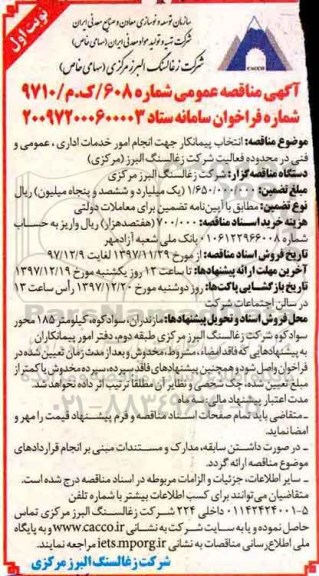 نوبت اول
سازمان توسعه و نوسازی معادن و صنایع معدنی ایران
شرکت تهیه و تولید مواد معدنی ایران (سهامی خاص)
شرکت زغالسنگ البرز مرکزی (سهامی خاص)
CACCO
آگهی مناقصه عمومی شماره ۶۰۸/ک.م/۹۷۱۰
شماره فراخوان سامانه ستاد ۲۰۰۹۷۲۰۰۰۶۰۰۰۰۳
موضوع مناقصه: انتخاب پیمانکار جهت انجام امور خدمات اداری، عمومی و
فنی در محدوده فعالیت شرکت زغالسنگ البرز (مرکزی)
دستگاه مناقصه گزار: شرکت زغالسنگ البرز مرکزی
مبلغ تضمین: ۱/۶۵۰/۰۰۰/۰۰۰ (یک میلیارد و ششصد و پنجاه میلیون) ریال
نوع تضمین: مطابق با آیین‌نامه تضمین برای معاملات دولتی
هزینه خرید اسناد مناقصه: ۷۰۰/۰۰۰ (هفتصدهزار) ریال واریز به حساب
شماره ۰۱۰۶۱۲۲۹۶۶۰۰۸ بانک ملی شعبه آزادمهر
تاریخ فروش اسناد مناقصه: از مورخ ۱۳۹۷/۱۱/۲۹ لغایت ۹۷/۱۲/۹
آخرین مهلت ارائه پیشنهادها: تا ساعت ۱۳ روز یکشنبه مورخ ۱۳۹۷/۱۲/۱۹
تاریخ بازگشایی پاکت‌ها: روز دوشنبه مورخ ۱۳۹۷/۱۲/۲۰ رأس ساعت ۱۳
در سالن اجتماعات شرکت
محل فروش اسناد و تحویل پیشنهادها: مازندران، سوادکوه، کیلومتر ۱۸۵ محور
سوادکوه شرکت زغالسنگ البرز مرکزی طبقه دوم، دفتر امور پیمانکاران
به پیشنهادهایی که فاقد امضاء، مشروط، مخدوش و بعد از مدت زمان تعیین شده در
فراخوان واصل شود و همچنین پیشنهادهای فاقد سپرده، سپرده مخدوش یا کمتر از
مبلغ تعیین شده، چک شخصی و نظایر آن مطلقا ترتیب اثر داده نخواهد شد.
مدت اعتبار پیشنهاد مالی سه ماه
- متقاضی باید تمام صفحات اسناد مناقصه و فرم پیشنهاد قیمت را مهر و
امضا نماید.
- در صورت داشتن سابقه، مدارک و مستندات مبنی بر انجام قراردادهای
موضوع مناقصه ارائه گردد.
- سایر اطلاعات، جزئیات و الزامات مربوطه در اسناد مناقصه درج شده است.
متقاضیان می‌توانند برای کسب اطلاعات بیشتر با شماره تلفن
۰۱۱۴۲۴۲۴۰۰۱-۵ داخلی ۲۲۴ شرکت زغالسنگ البرز مرکزی تماس
حاصل نموده و یا به سایت شرکت به نشانی www.cacco.ir و به پایگاه
ملی اطلاع رسانی مناقصات به نشانی iets.mporg.ir مراجعه نمایند.
شرکت زغالسنگ البرز مرکزی